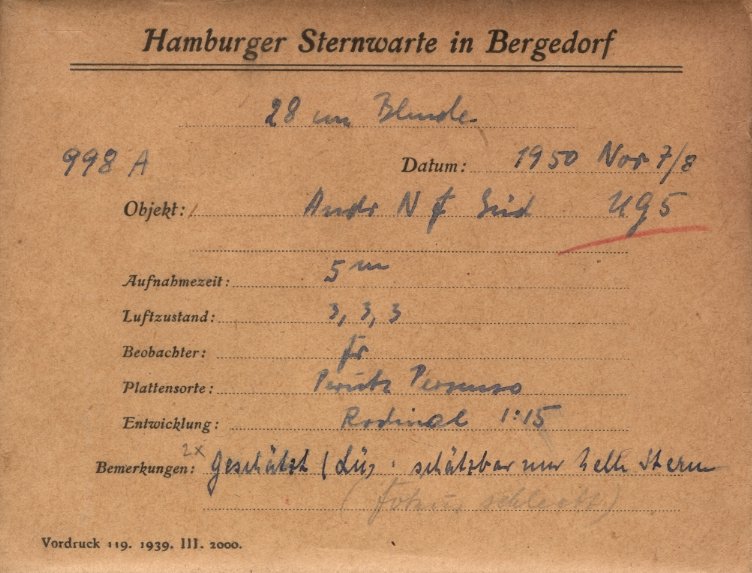 Hamburger Sternwarte in Bergedorf
28 cm Blende
998 A Datum: 1950 Nov 7/8
Objekt: Andr N f Süd UG5
Aufnahmezeit: 5 m
Luftzustand: 3, 3, 3
Beobachter: fr
Plattensorte: Perutz Persenso
Entwicklung: Rodinal 1:15
2x
Bemerkungen: geschätzt (Lü, : schätzbar nur helle Sterne
schlecht)
Vordruck 119. 1939. III. 2000.